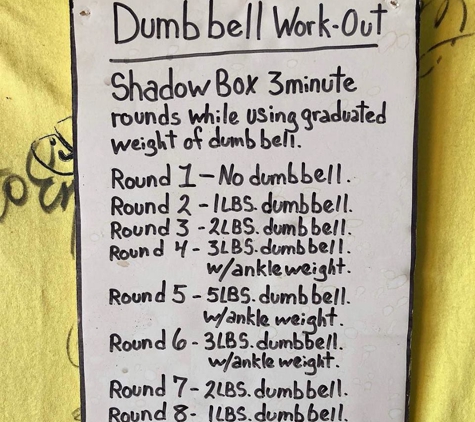 Dumbbell Work-Out
Shadow Box 3minute
rounds while using graduated
weight of dumbbell.
Round 1 - No dumbbell.
Round 2 - 1LBS. dumbbell.
Round 3 - 2LBS. dumbbell.
Round 4 - 3LBS. dumbbell.
w/ankle weight.
Round 5 - 5LBS. dumbbell.
w/ankle weight.
Round 6 - 3LBS. dumbbell.
w/ankle weight.
Round 7 - 2LBS. dumbbell.
Round 8 - 1LBS. dumbbell.